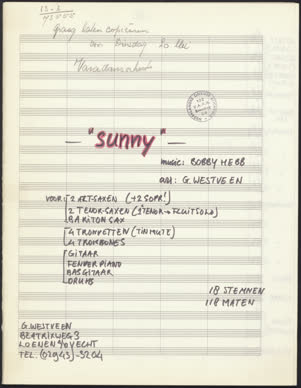 Graag laten copiëren
voor Dinsdag 20 Mei
— "sunny" —
music: BOBBY HEBB
arr: G. WESTVEEN
VOOR: 2 ALT-SAXEN (+2 SOPR!)
2 TENOR-SAXEN (1e TENOR → FLUITSOLO)
BARITON SAX
4 TROMPETTEN (TIN MUTE)
4 TROMBONES
GITAAR
FENDER PIANO
BASGITAAR
DRUMS
18 STEMMEN
118 MATEN
G. WESTVEEN
BEATRIXWEG 3
LOENEN a/d VECHT
TEL. (02943)-3204